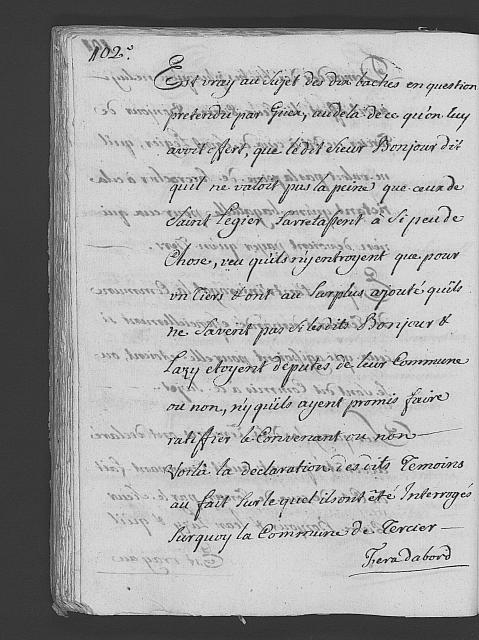 102.
Est vray au Sujet des dix baches en question
pretendu par Guex, audela de ce qu'on luy
avoit offert, que ledit Sieur Bonjour dit
quil ne valoit pas la peine que ceux de
Saint Legier Sarretassent à Si peu de
Chose, veu quils n'y entroyent que pour
un tiers & ont au Surplus ajouté quils
ne Savent pas Si lesdits Bonjour &
étoyent députés de leur Commune
ou non, n'y qu'ils ayent promis faire
ratiffier à Convenant ou non
Voilà la declaration des dits Temoins
au fait Sur lequel ils ont été Interrogés
Surquoy la Commune de Tercier
Fera d'abord